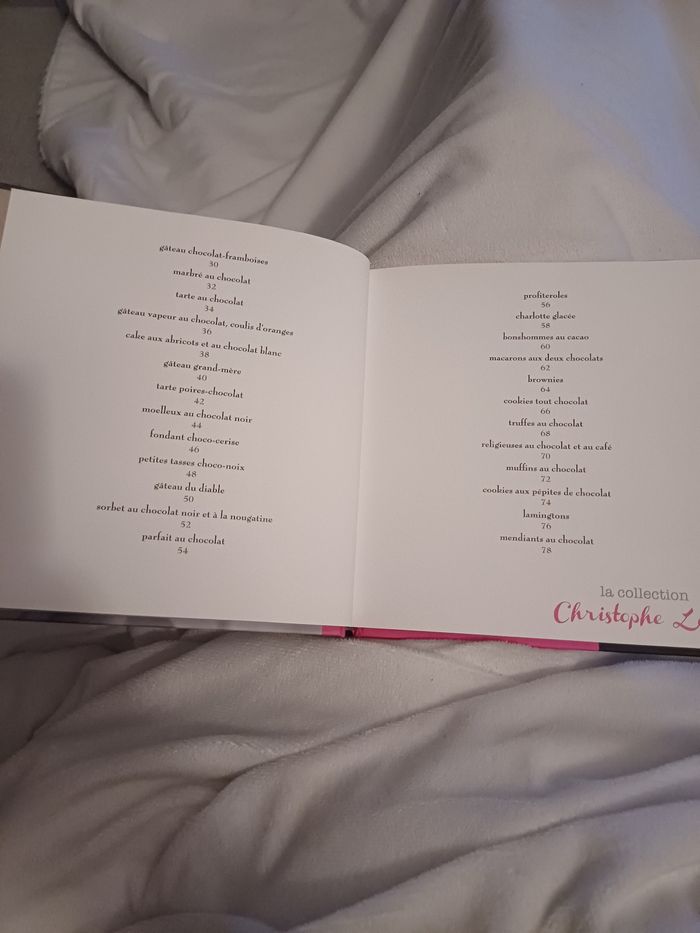 gâteau chocolat-framboises
30
marbré au chocolat
32
tarte au chocolat
34
gâteau vapeur au chocolat, coulis d'oranges
36
cake aux abricots et au chocolat blanc
38
gâteau grand-mère
40
tarte poires-chocolat
42
moelleux au chocolat noir
44
fondant choco-cerise
46
petites tasses choco-noix
48
gâteau du diable
50
sorbet au chocolat noir et à la nougatine
52
parfait au chocolat
54
profiteroles
56
charlotte glacée
58
bonshommes au cacao
60
macarons aux deux chocolats
62
brownies
64
cookies tout chocolat
66
truffes au chocolat
68
religieuses au chocolat et au café
70
muffins au chocolat
72
cookies aux pépites de chocolat
74
lamingtons
76
mendiants au chocolat
78
la collection
Christophe